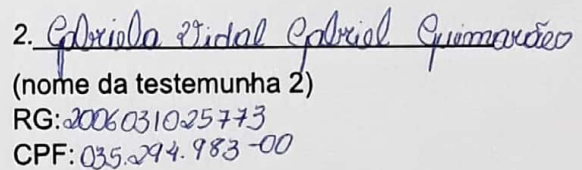 2. Gabriela Vidal Gabriel Guimarães
(nome da testemunha 2)
RG: 2006031025773
CPF: 035.294.983-00